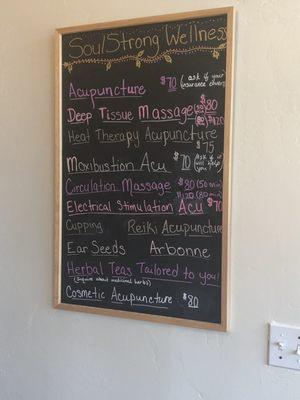 SoulStrong Wellness
Acupuncture $70 (ask if your insurance covers)
Deep Tissue Massage $80
$120
Heat Therapy Acupuncture
$75
Moxibustion Acu $70 (Ask if it will help you!)
Circulation Massage $80 (50 min)
$120 (80 min)
Electrical Stimulation Acu $70
Cupping Reiki Acupuncture
Ear Seeds Arbonne
Herbal Teas Tailored to you!
(Inquire about medicinal herbs)
Cosmetic Acupuncture $80